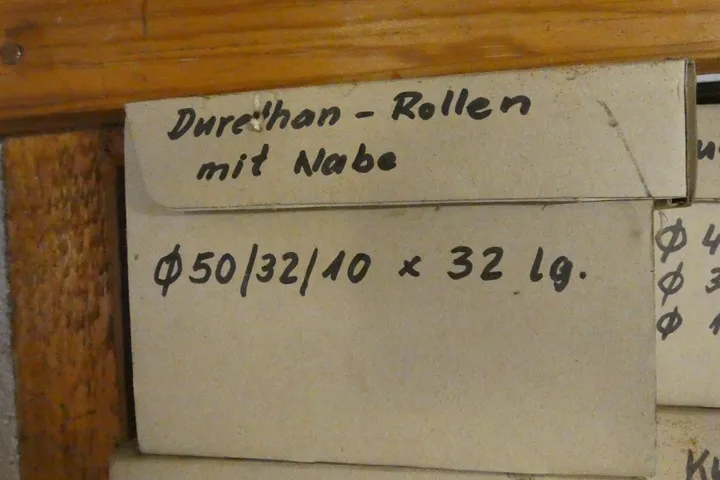 Durethan - Rollen
mit Nabe
Ø 50/32/10 x 32 lg.
Ø 4
Ø 3
Ø 1